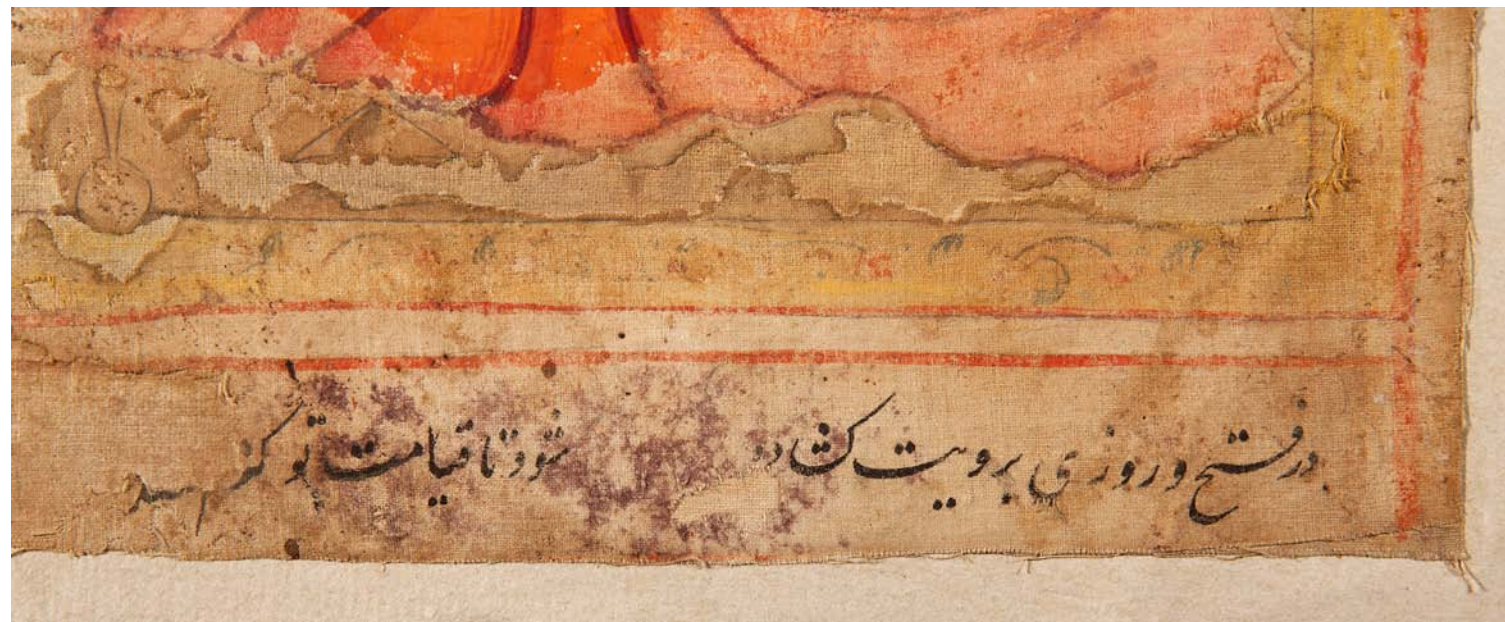 در فتح و روزی برویت کشاده شود تا قیامت تو